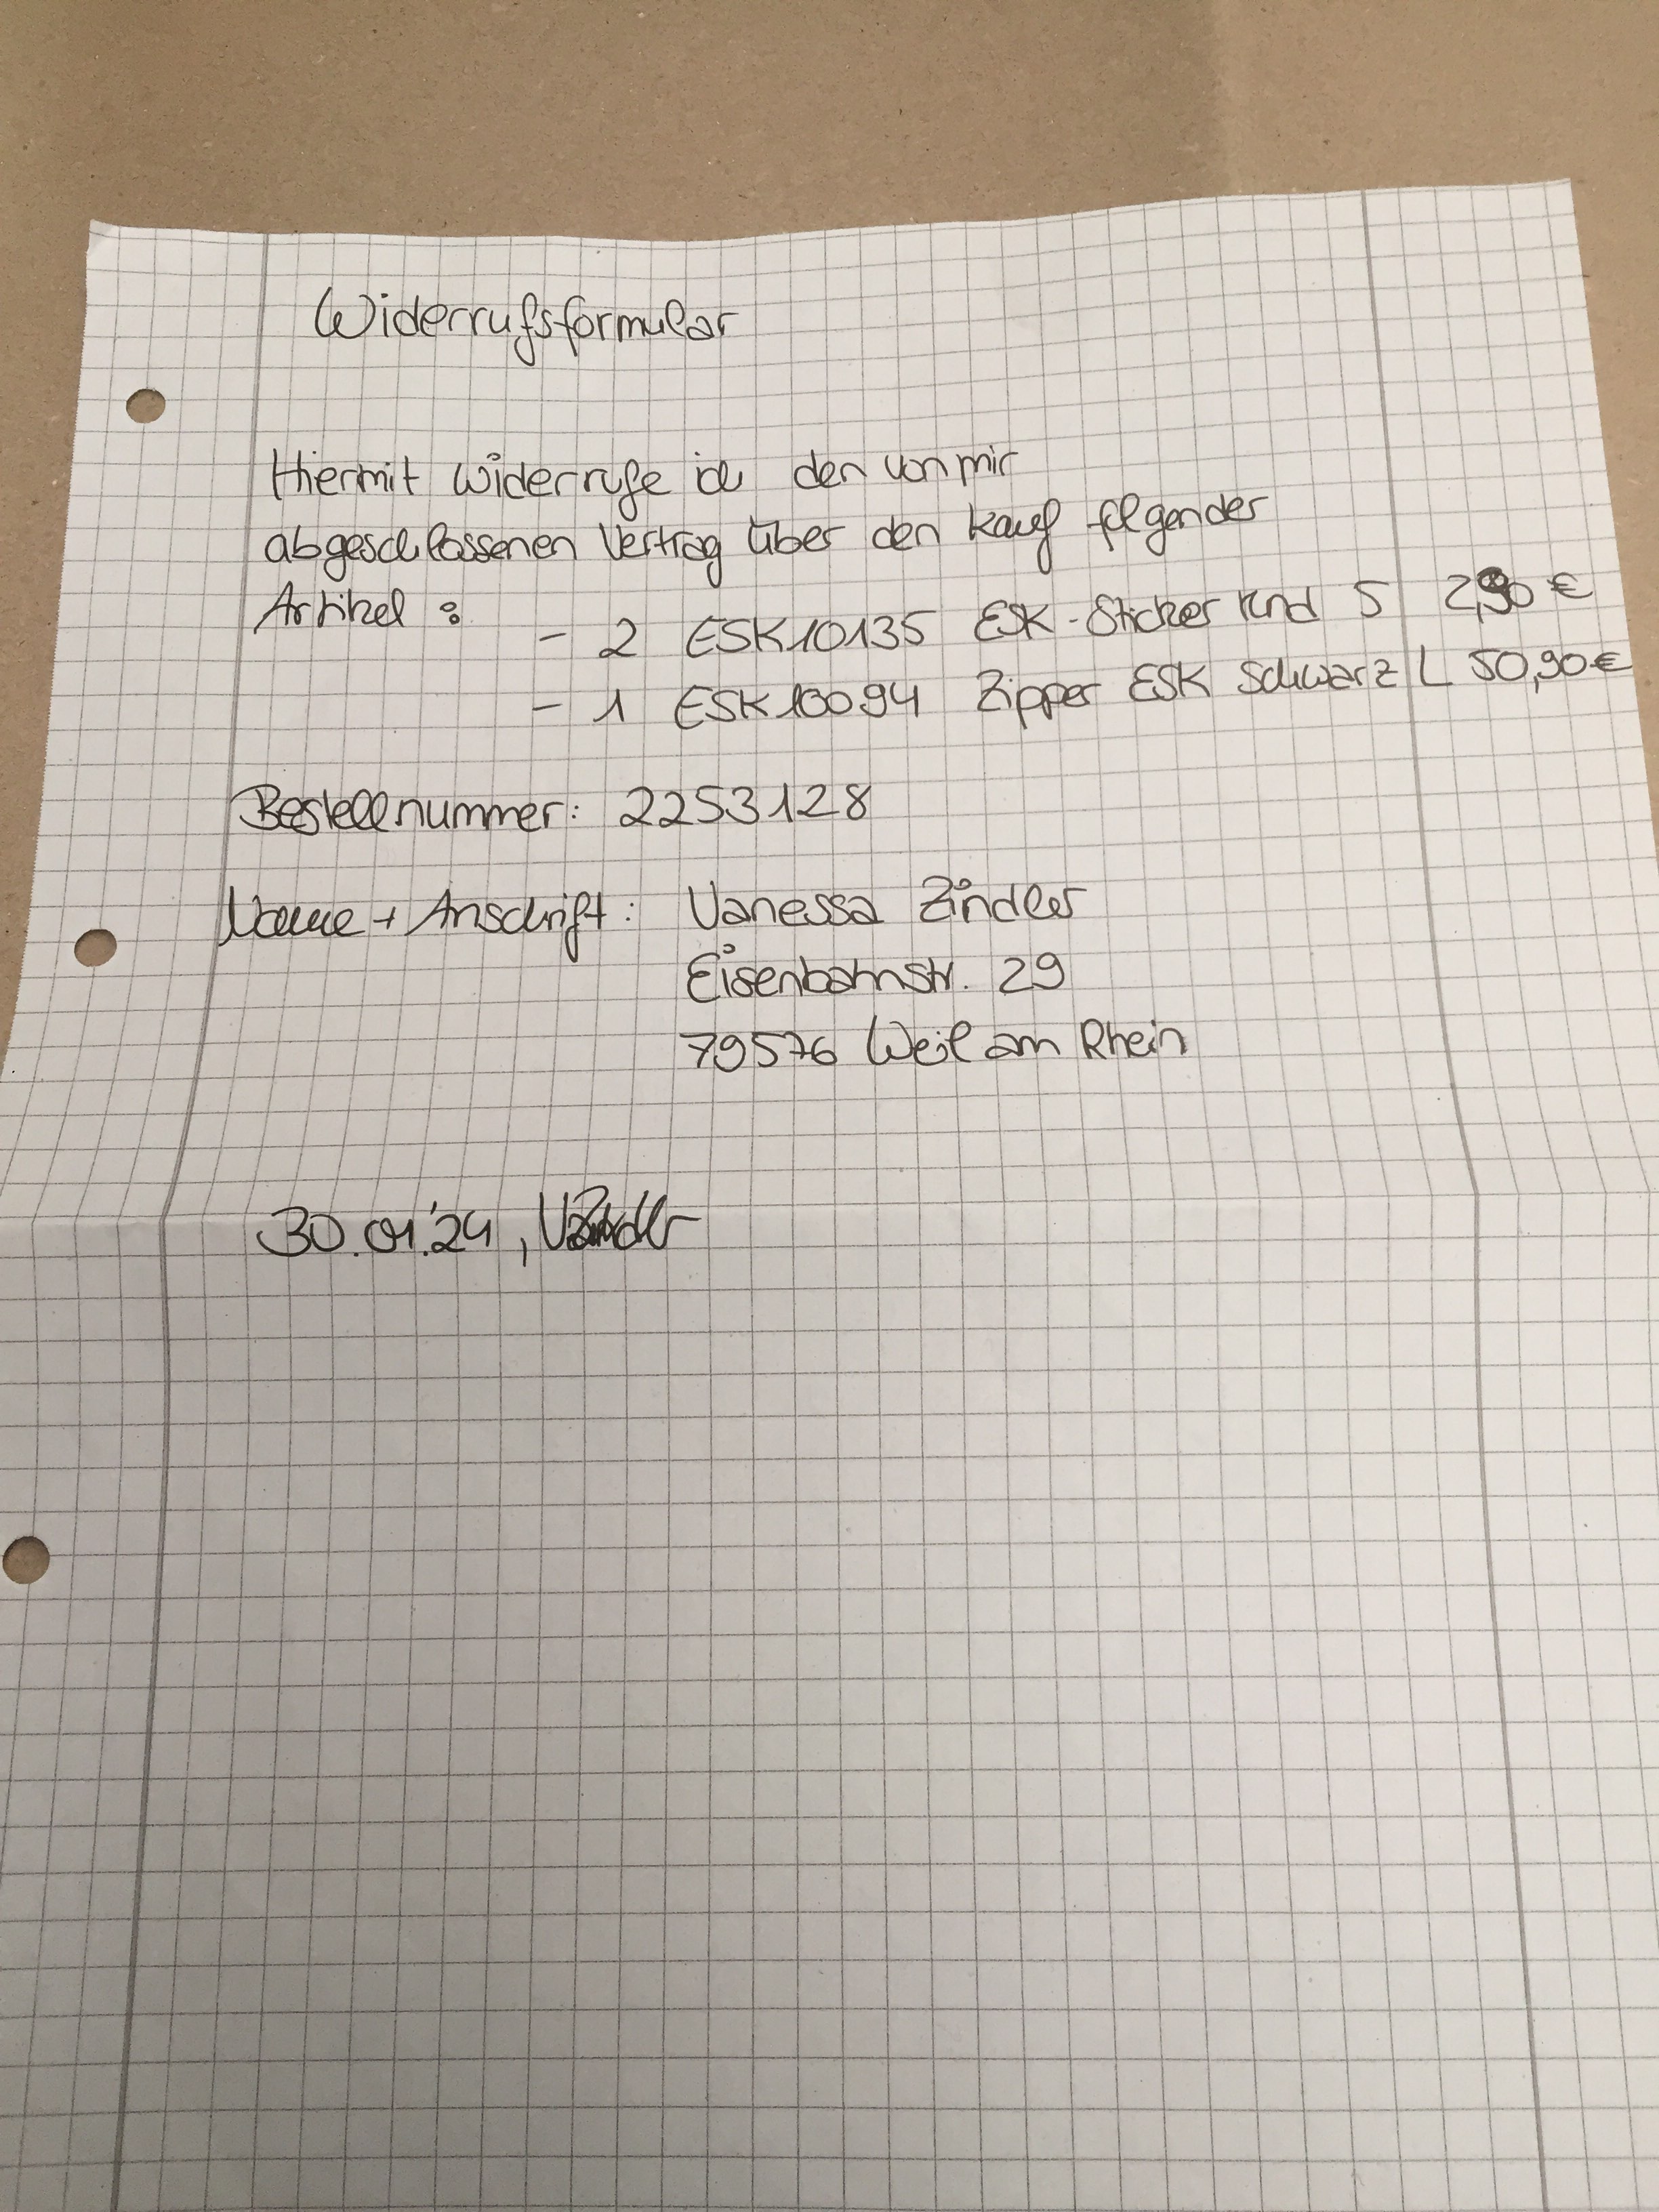 Widerrufsformular
Hiermit widerrufe ich den von mir
abgeschlossenen Vertrag über den Kauf folgender
Artikel :
- 2 ESK10135 ESK-Sticker rund S 2,90 €
- 1 ESK10094 Zipper ESK Schwarz L 50,90 €
Bestellnummer: 2253128
Name + Anschrift: Vanessa Zindler
Eisenbahnstr. 29
79576 Weil am Rhein
30.01.'24, VZindler